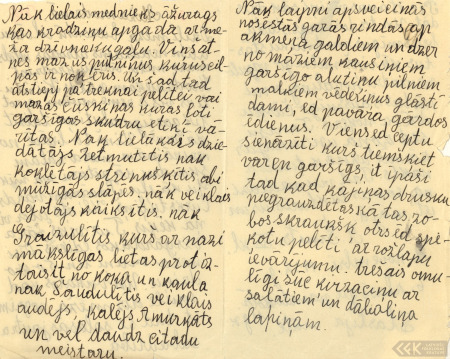 Nāk lielais mednieks āžurags
kas krodziņu apgādā ar me-
ža dzīvnieku gaļu. Viņš at-
nes mazus putniņus kurus ed-
pās ir nok eris. Kā šad tad
atstiepj pa treknai pelītei vai
mazas čūskiņas kuras ļoti
garšīgas skudru etiķī vā-
rītas. Nāk lielākais dzie-
dātājs Zelmutītis nāk
kokletājs strinkšķītis abi
mūžīgās slāpēs. nāk veiklais
dejotājs ķaiķsītis. nāk
Graizulītis kurš ar nazi
mākslīgas lietas prot iz-
taisīt no koka un kaula
nāk Šaudulītis veiklais
audējs. Kalējs Āmurkāts
un vel daudz citadu
meistaru.
Nāk laipni apsveicinās
nosēstās garās rindās ap
akmeņa galdiem un dzer
no māziem kausiņiem
garšīgo alutiņu pilniem
malkiem vēderiņus glāstī
dami, ed pavāra gārdos
ēdienus. Viens ed ceptu
sienāzīti kurš tiem šķiet
varen garšīgs, it īpaši
tad kad kājiņas drusku
piegrauzdētas kā tas zo-
bos skraukšķ otrs ed spe-
ķotu pelīti ar rožlapu
ievārījumu. trešais omu-
līgi sūc kurzaciņu ar
salātiem un dāboliņa
lapiņām.